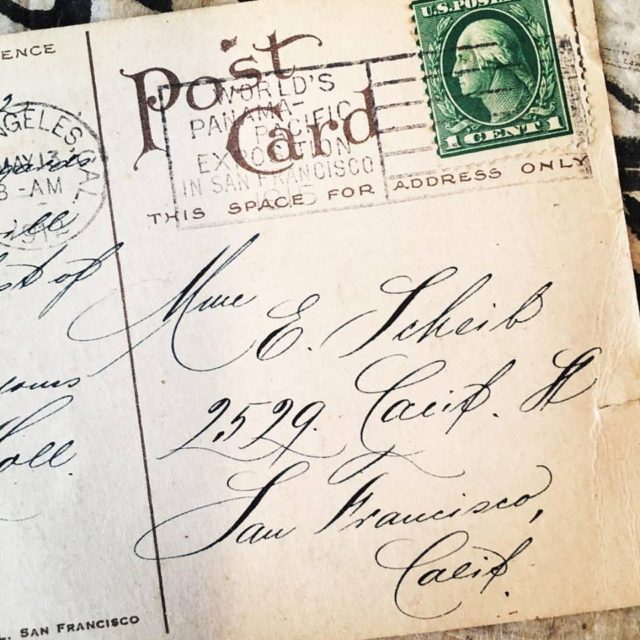 ENCE
Post Card
ANGELES
CAL
MAY 13
8-AM
WORLD'S
PANAMA-
PACIFIC
EXPOSITION
IN SAN FRANCISCO
1915
U.S. POSTAGE
1 CENT 1
THIS SPACE FOR ADDRESS ONLY
st of
yours
Mme E. Scheib
2529. Calif. St
San Francisco,
Calif.
SAN FRANCISCO